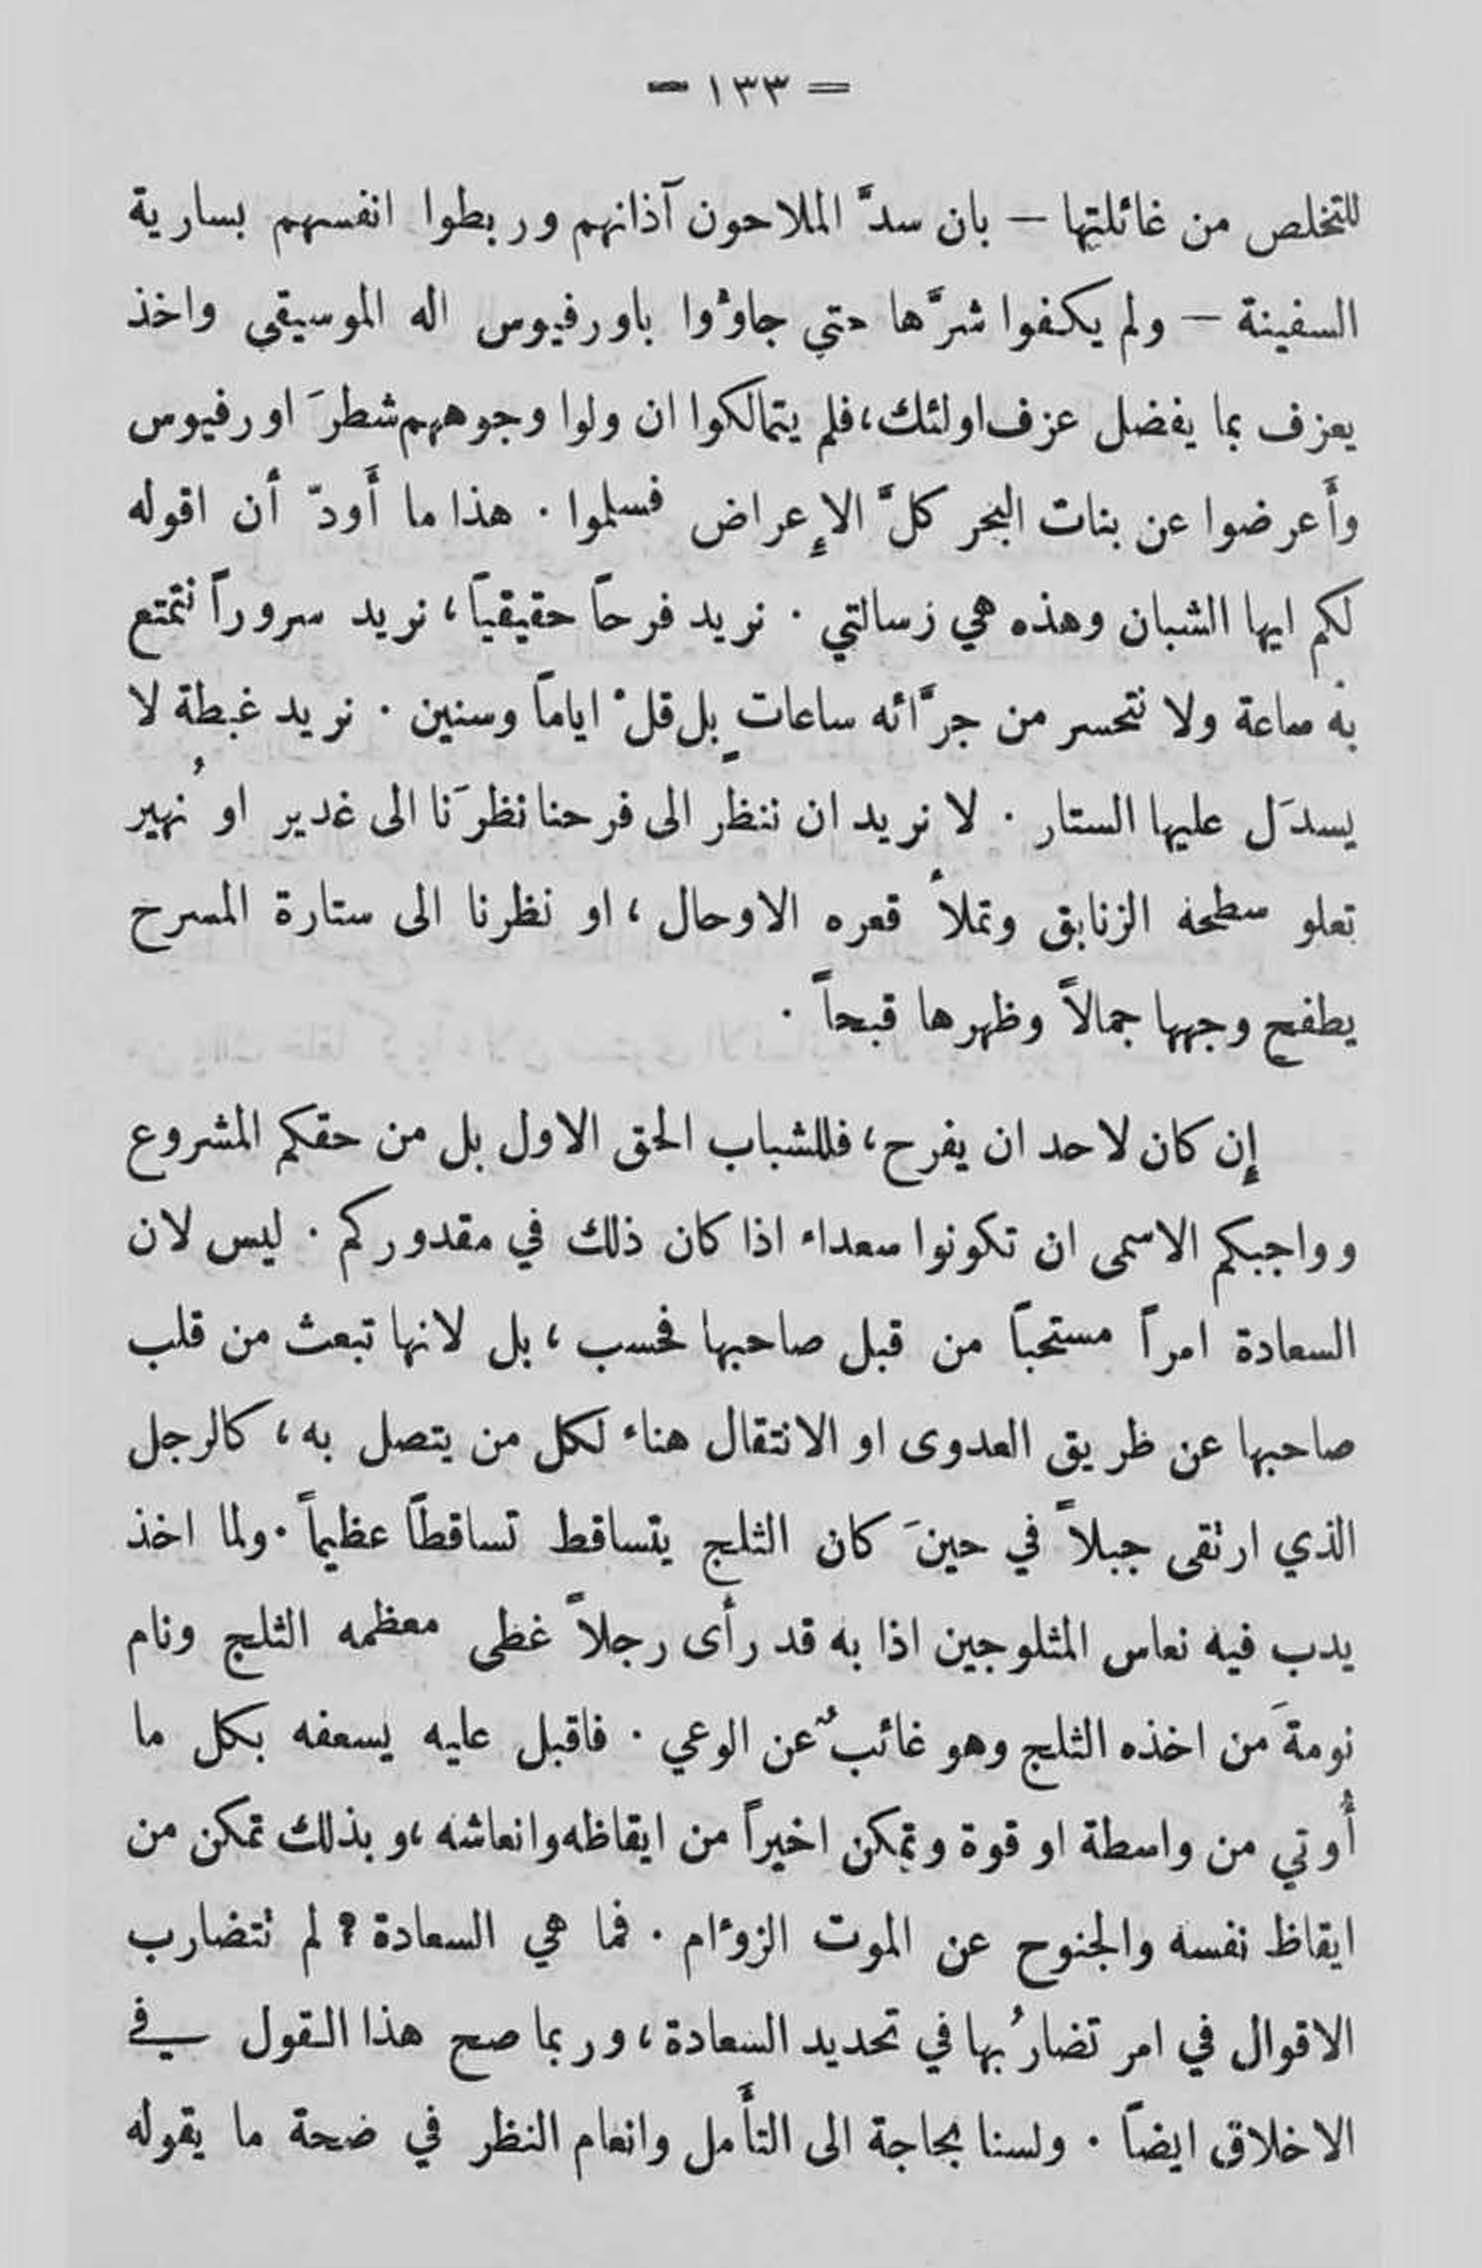 = ١٣٣ -
للتخلص من غائلتها – بان سدَّ الملاحون آذانهم وربطوا انفسهم بسارية
السفينة – ولم يكفوا شرَّها حتي جاؤوا باورفيوس اله الموسيقي واخذ
يعزف بما يفضل عزف اولئك، فلم يتمالكوا ان ولوا وجوههم شطرَ اورفيوس
وأَعرضوا عن بنات البحر كلَّ الإِعراض فسلموا . هذا ما أَودّ أن اقوله
لكم ايها الشبان وهذه هي زسالتي . نريد فرحاً حقيقياً ، نريد سروراً نتمتع
به ساعة ولا نتحسر من جرَّائه ساعاتٍ بل قلْ اياماً وسنين . نريد غبطة لا
يسدَل عليها الستار . لا نريد ان ننظر الى فرحنا نظرَنا الى غدير او نُهير
تعلو سطحه الزنابق وتملأ قعره الاوحال ، او نظرنا الى ستارة المسرح
يطفح وجهها جمالاً وظهرها قبحاً .
إِن كان لاحد ان يفرح ، فللشباب الحق الاول بل من حقكم المشروع
وواجبكم الاسمى ان تكونوا سعداء اذا كان ذلك في مقدوركم . ليس لان
السعادة امراً مستحباً من قبل صاحبها فحسب ، بل لانها تبعث من قلب
صاحبها عن طريق العدوى او الانتقال هناء لكل من يتصل به ، كالرجل
الذي ارتقى جبلاً في حينَ كان الثلج يتساقط تساقطاً عظيماً . ولما اخذ
يدب فيه نعاس المثلوجين اذا به قد رأى رجلاً غطى معظمه الثلج ونام
نومةَ من اخذه الثلج وهو غائبٌ عن الوعي . فاقبل عليه يسعفه بكل ما
أُوتي من واسطة او قوة وتمكن اخيراً من ايقاظه وانعاشه ، وبذلك تمكن من
ايقاظ نفسه والجنوح عن الموت الزؤام . فما هي السعادة ؟ لم تتضارب
الاقوال في امر تضارُبها في تحديد السعادة ، وربما صح هذا القول في
الاخلاق ايضاً . ولسنا بحاجة الى التأَمل وانعام النظر في ضحة ما يقوله